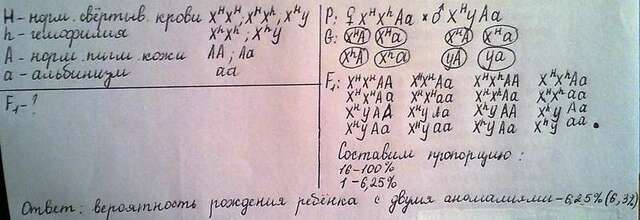 H - норм. свёртыв. крови XᴴXᴴ; XᴴXʰ, Xᴴy
h - гемофилия XʰXʰ; Xʰy
A - норм. пигм. кожи AA; Aa
a - альбинизм aa
F₁ - ?
P: ♀ XᴴXʰAa × ♂ XᴴyAa
G: XᴴA Xᴴa XᴴA Xᴴa
XʰA Xʰa yA ya
F₁: XᴴXᴴAA XᴴXᴴAa XᴴXʰAA XᴴXʰAa
XᴴXᴴAa XᴴXᴴaa XᴴXʰAa XᴴXʰaa
XᴴyAA XᴴyAa XʰyAA XʰyAa
XᴴyAa Xᴴyaa XʰyAa Xʰyaa.
Составим пропорцию:
16-100%
1-6,25%
Ответ: вероятность рождения ребёнка с двумя аномалиями-6,25% (6,3%)